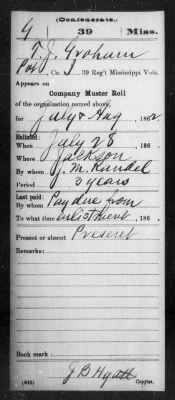 (Confederate.)
G 39 Miss.
T. J. Graham
Pvt, Co. I, 39 Reg't Mississippi Vols.
Appears on
Company Muster Roll
of the organization named above,
for July & Aug, 1862.
Enlisted:
When July 28, 186 .
Where Jackson
By whom J. M. Randel
Period 3 years
Last paid:
By whom Pay due from
To what time enlistment, 186 .
Present or absent Present
Remarks:
Book mark:
J B Hyatt
(642) Copyist.